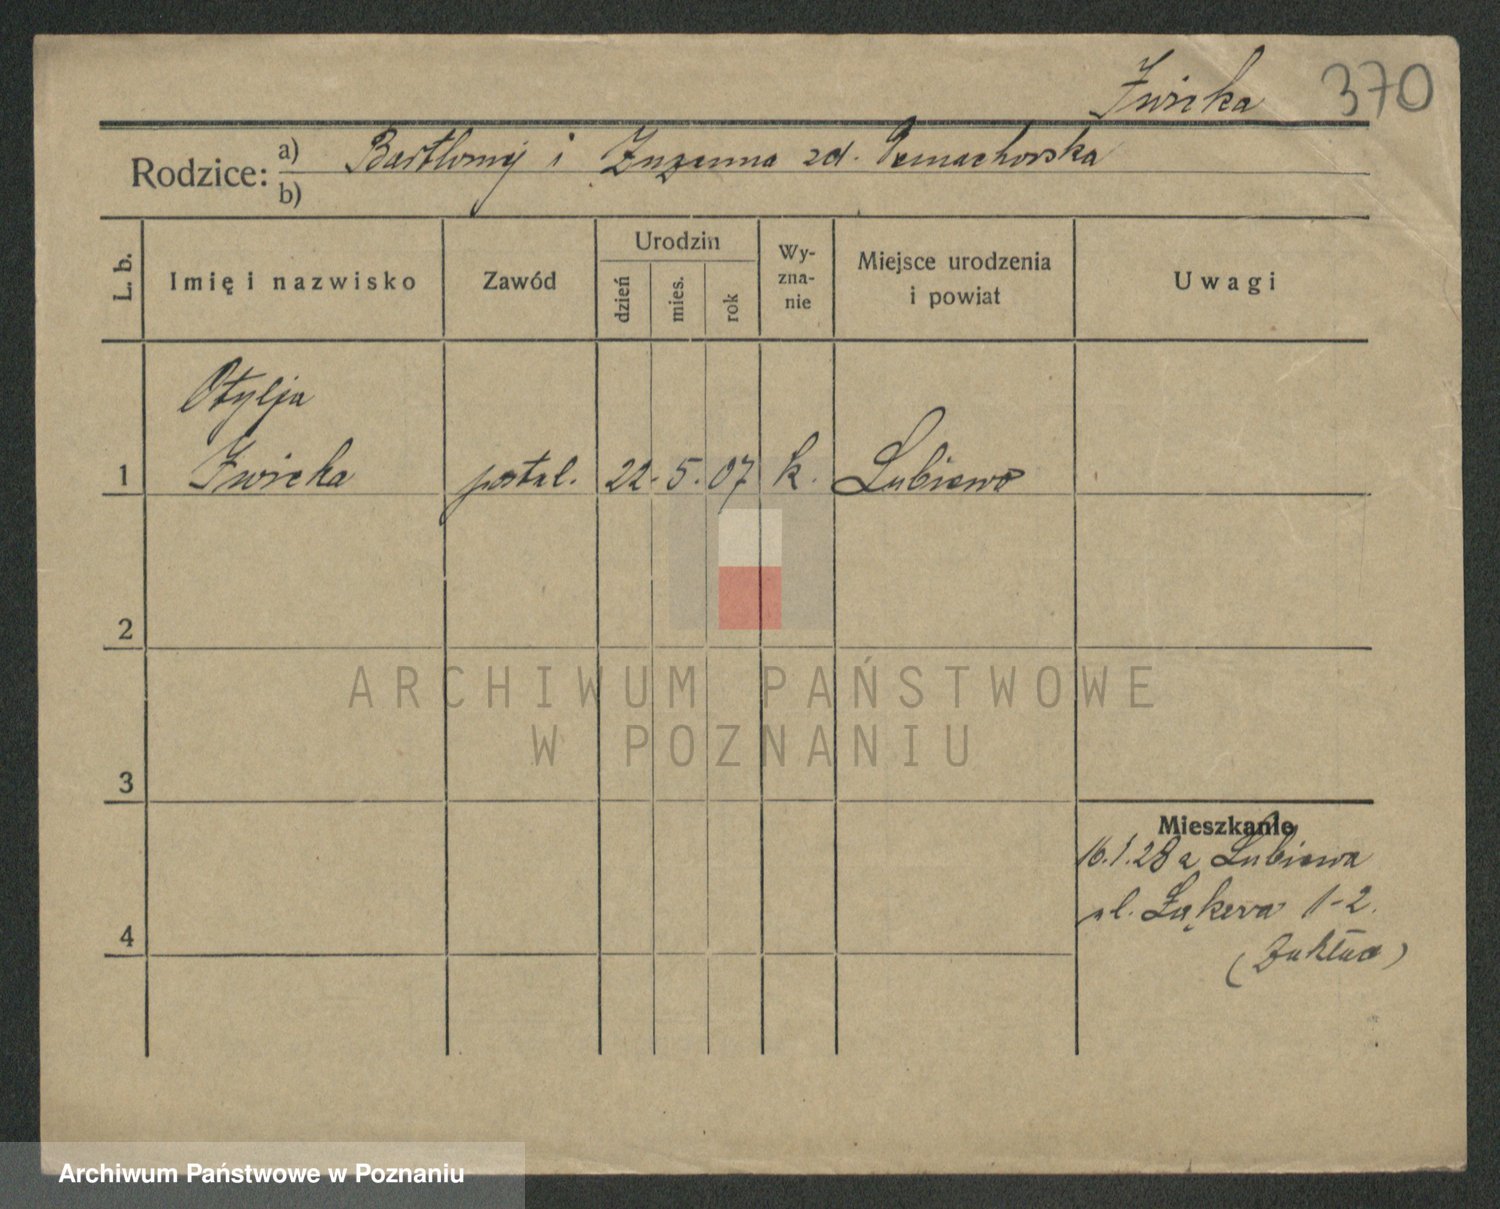 Żwirka 370
Rodzice: a) Bartłomiej i Zuzanna zd.
b)
L. b. Imię i nazwisko Zawód Urodzin dzień mies. rok Wy-zna-nie Miejsce urodzenia i powiat Uwagi
Otylja
1 Żwirka postul. 22. 5. 07 k. Lubiewo
2
ARCHIWUM PAŃSTWOWE
W POZNANIU
3
Mieszkanie
16.1.28 z Lubiewa
ul. Łąkowa 1-2.
4
(Zakład)
Archiwum Państwowe w Poznaniu